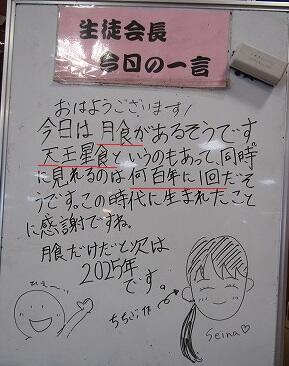 生徒会長
今日の一言
おはようございます!
今日は月食があるそうです。
天王星食というのもあって、同時
に見れるのは何百年に1回だそ
うです。この時代に生まれたこと
に感謝ですね。
月食だけだと次は
2025年
です。
ちちご作
Seina♡